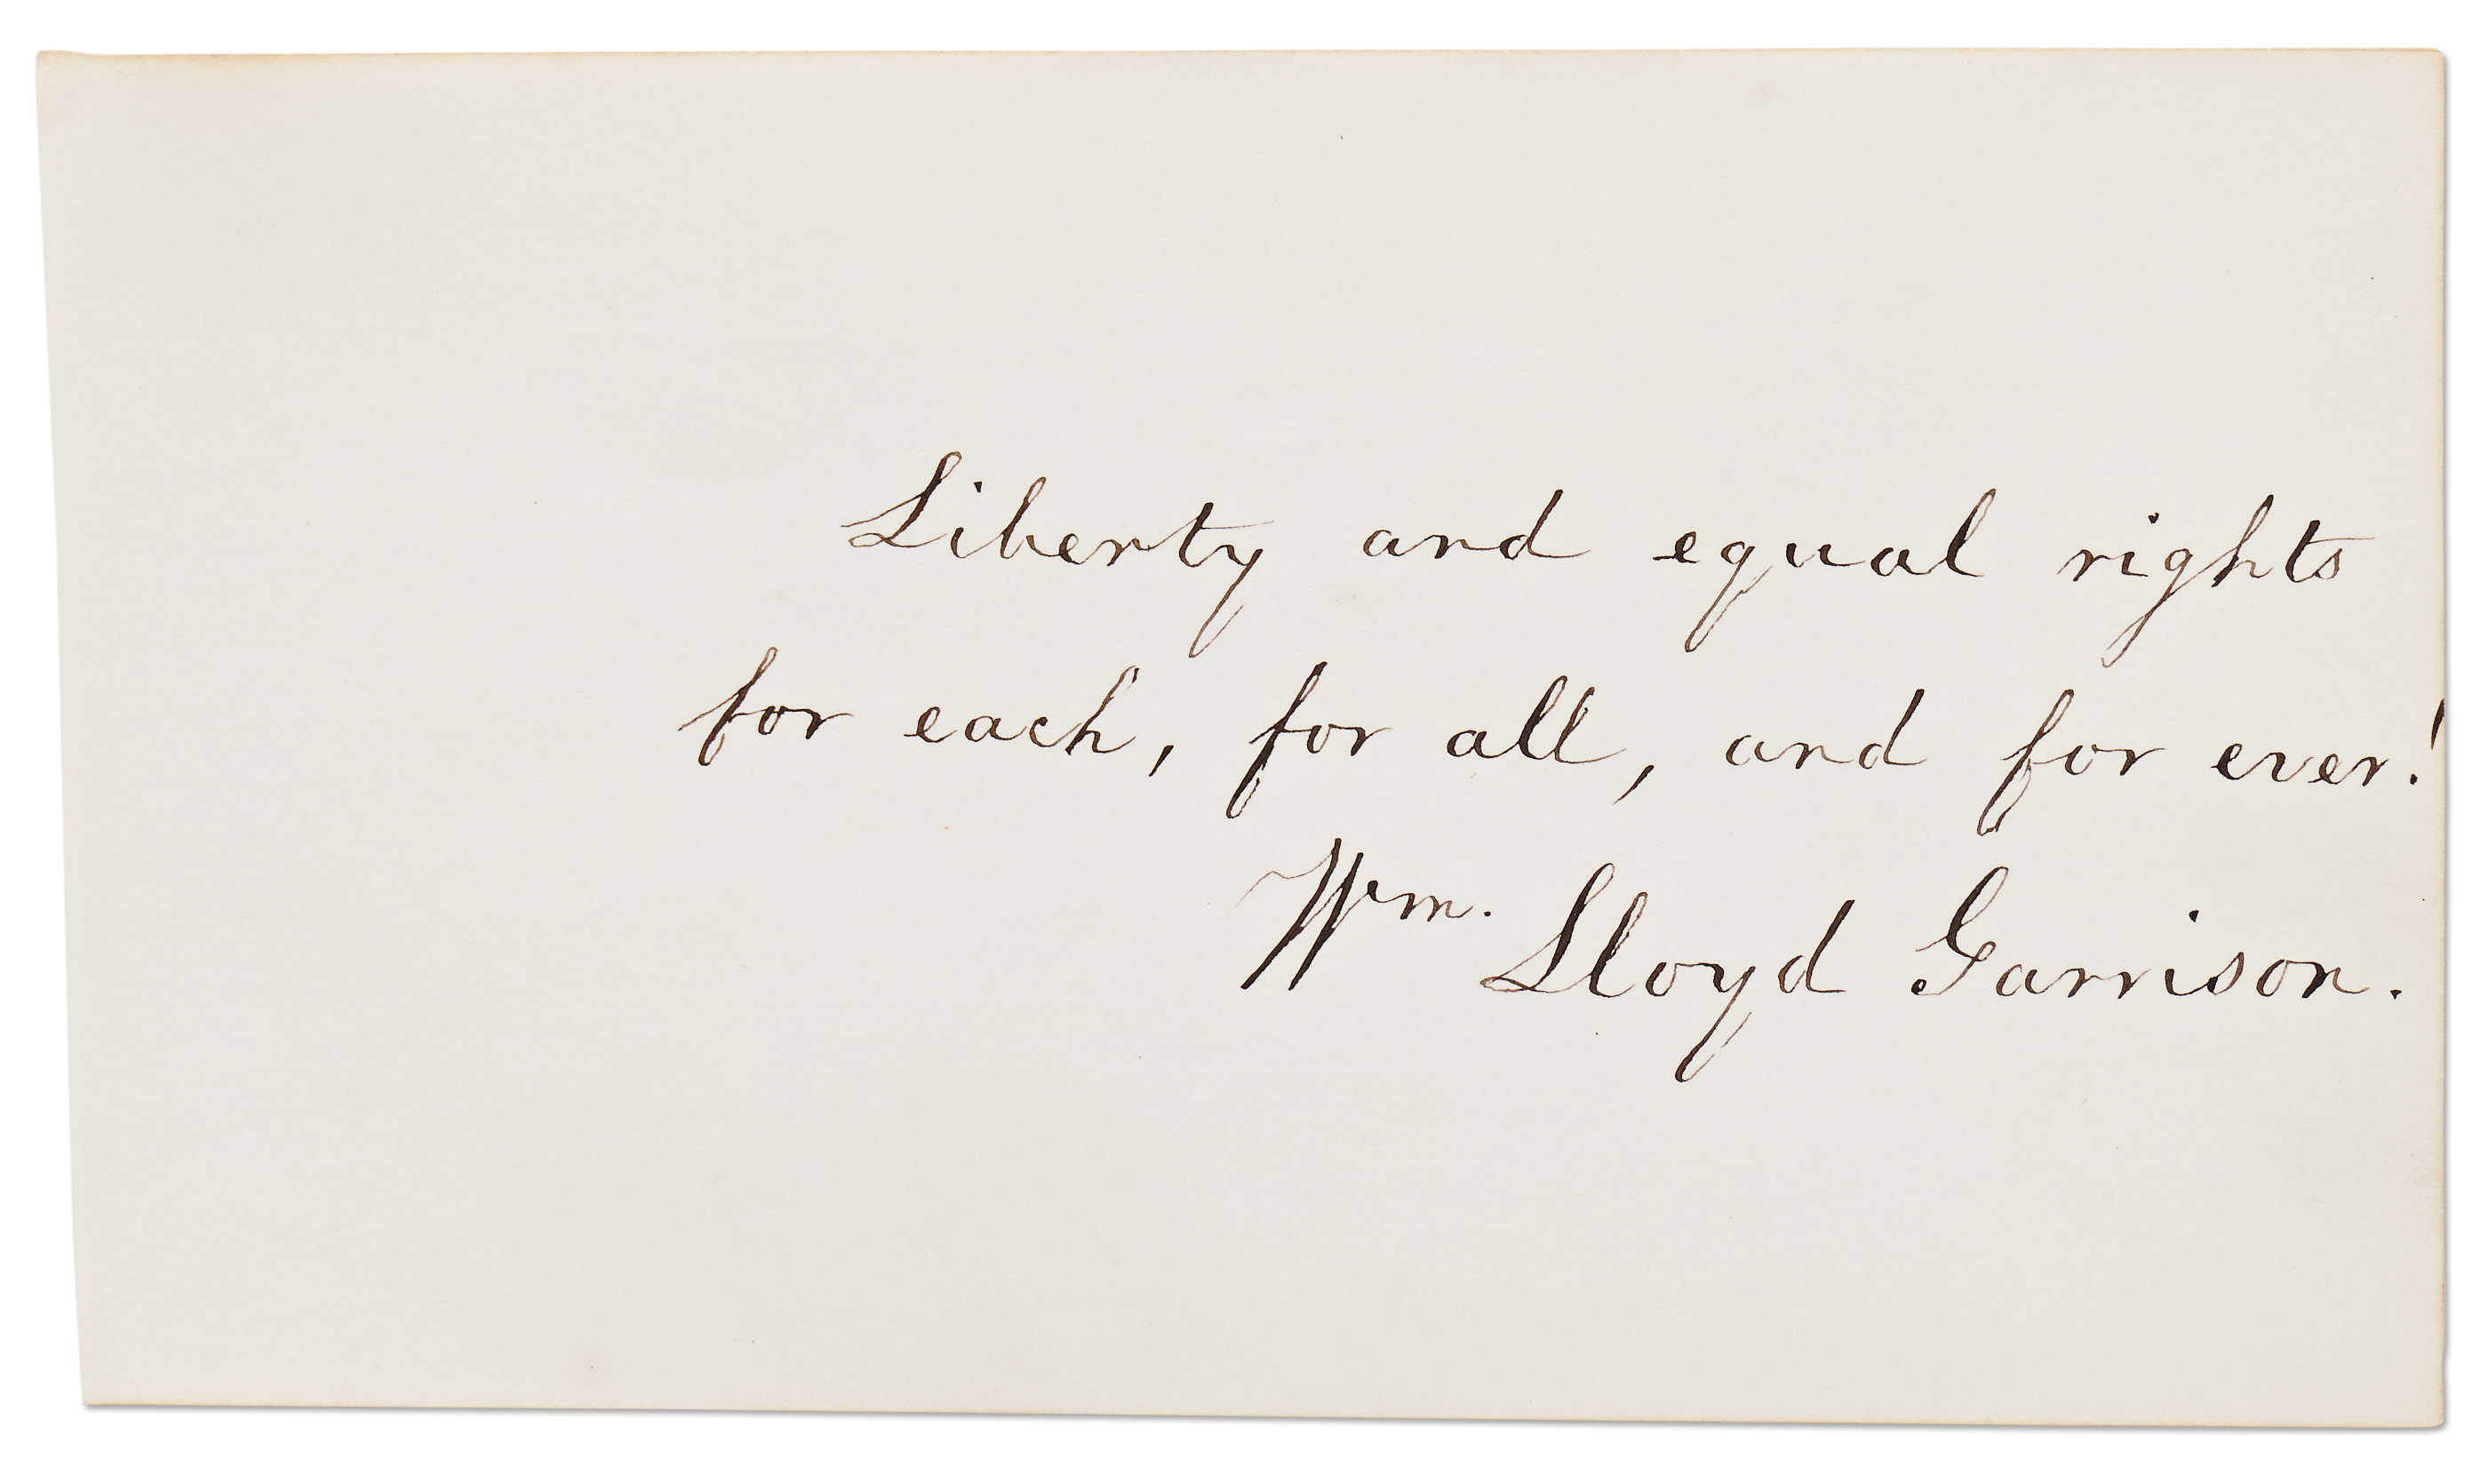 Liberty and equal rights
for each, for all, and for ever!
Wm. Lloyd Garrison.